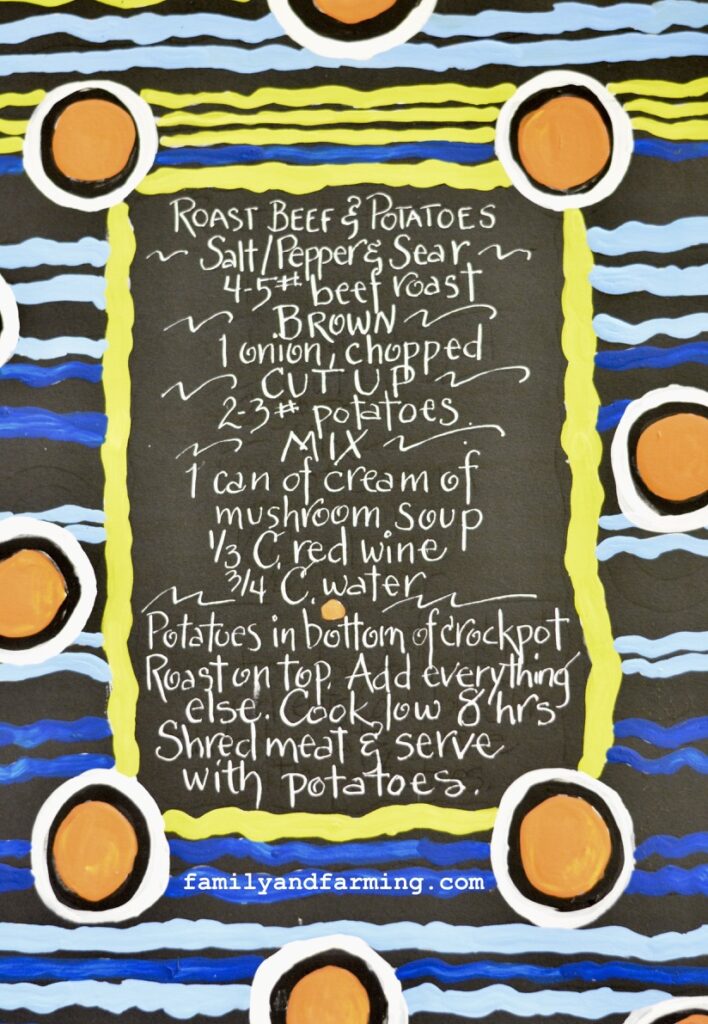 Roast Beef & Potatoes
Salt/Pepper & Sear
4-5# beef roast
BROWN
1 onion, chopped
CUT UP
2-3# potatoes
MIX
1 can of cream of
mushroom soup
1/3 C. red wine
3/4 C. water
Potatoes in bottom of crockpot
Roast on top. Add everything
else. Cook low 8 hrs
Shred meat & serve
with potatoes.
familyandfarming.com